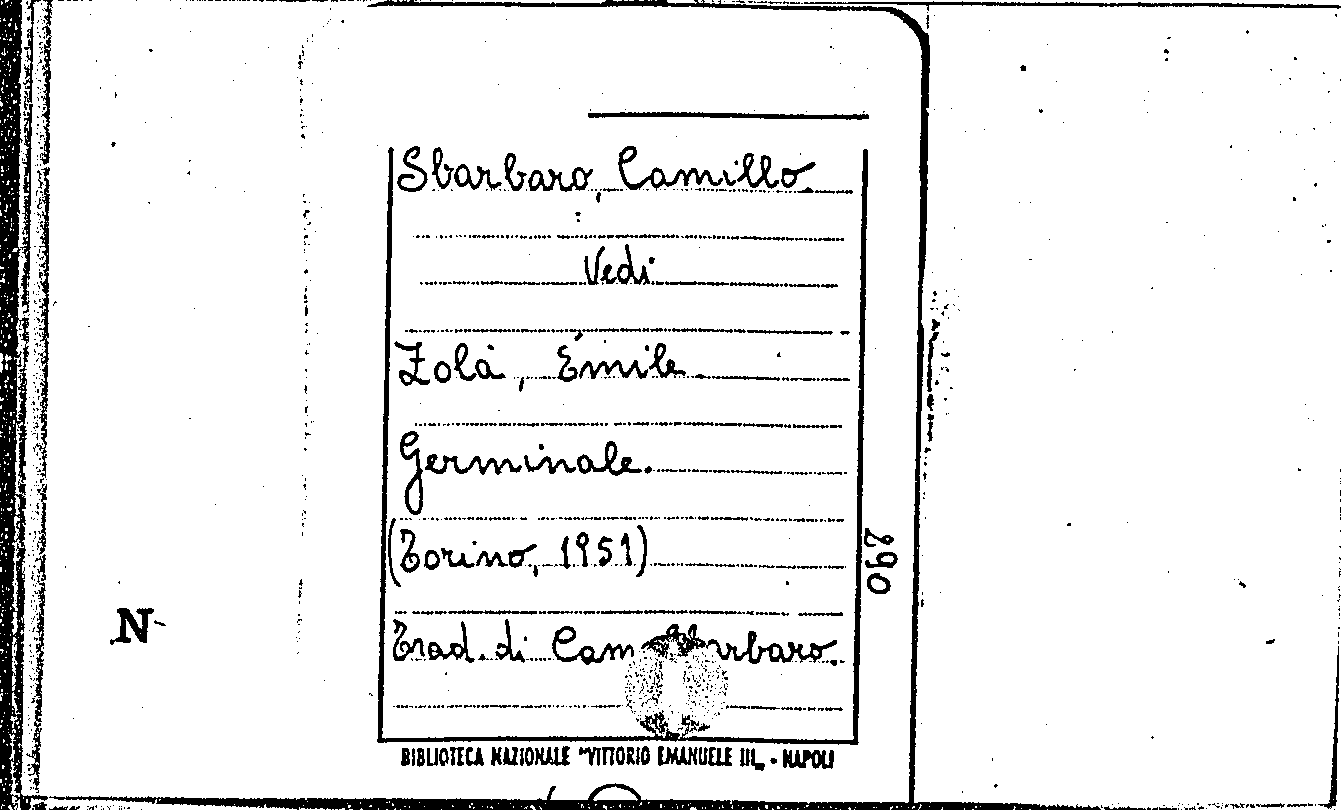 Sbarbaro, Camillo.
Vedi
Zola, Émile.
Germinale.
(Torino, 1951)
290
Trad. di Cam Sbarbaro.
N
BIBLIOTECA NAZIONALE "VITTORIO EMANUELE III„ - NAPOLI